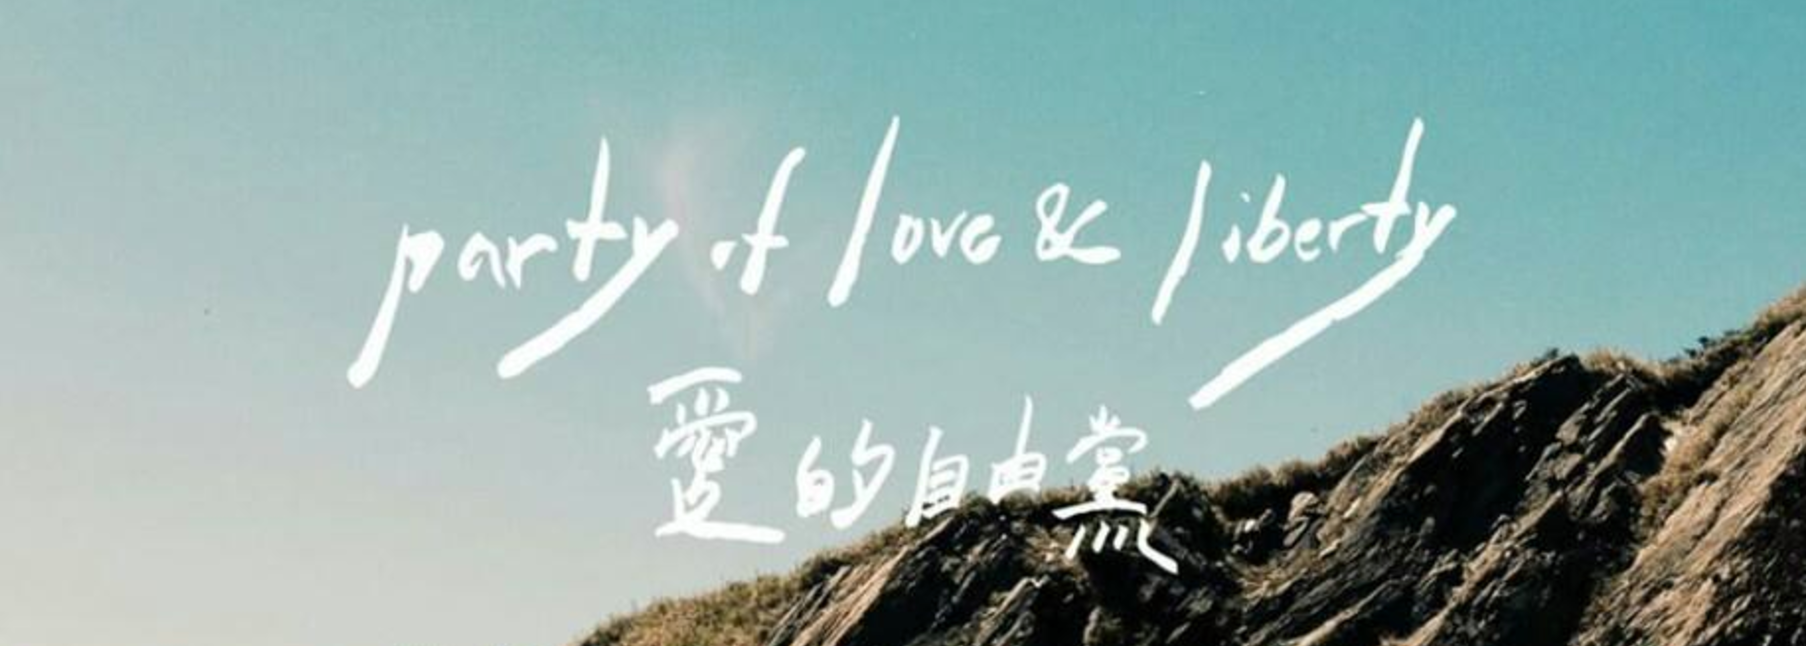 party of love & liberty
愛的自由黨